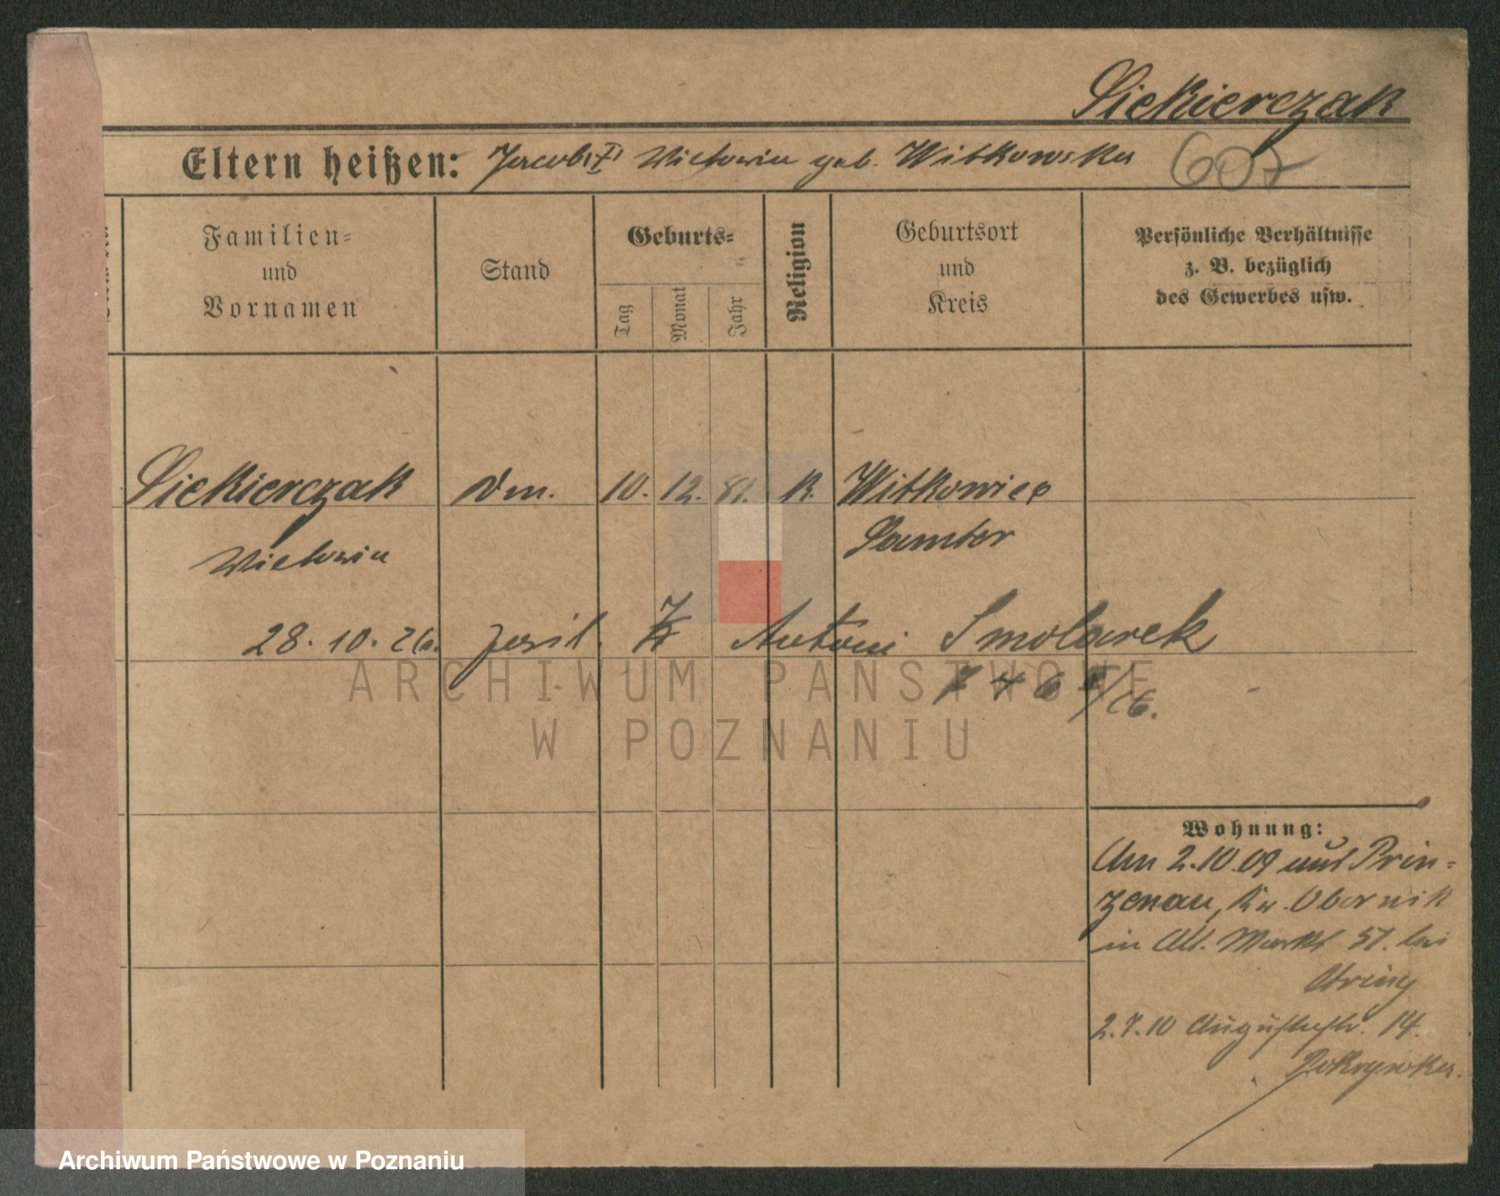 Siekierczak
Eltern heißen: Jacob † Victoria geb. Witkowska
607
Familien=
und
Vornamen
Stand
Geburts=
Tag
Monat
Jahr
Religion
Geburtsort
und
Kreis
Persönliche Verhältnisse
z. B. bezüglich
des Gewerbes usw.
Siekierczak Dm. 10. 12. 81. K. Witkowice
Victoria Samter
28. 10. 26. Antoni Smolarek
Wohnung:
Am 2.10.09 aus Prin=
zenau, Kr. Obornik
in Alt. Markt 57. bei
2.7.10 Augustastr. 14.
ARCHIWUM PAŃSTWOWE
W POZNANIU
Archiwum Państwowe w Poznaniu